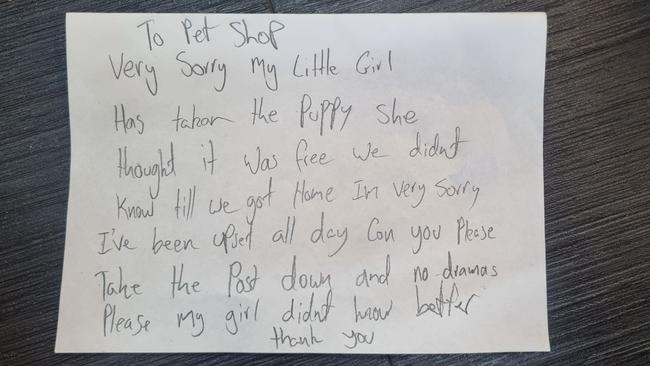 To Pet Shop
Very Sorry My Little Girl
Has taken the Puppy She
thought it was free we didnt
Know till we got Home Im very Sorry
I've been upset all day Can you Please
Take the Post down and no dramas
Please my girl didnt know better
thank you